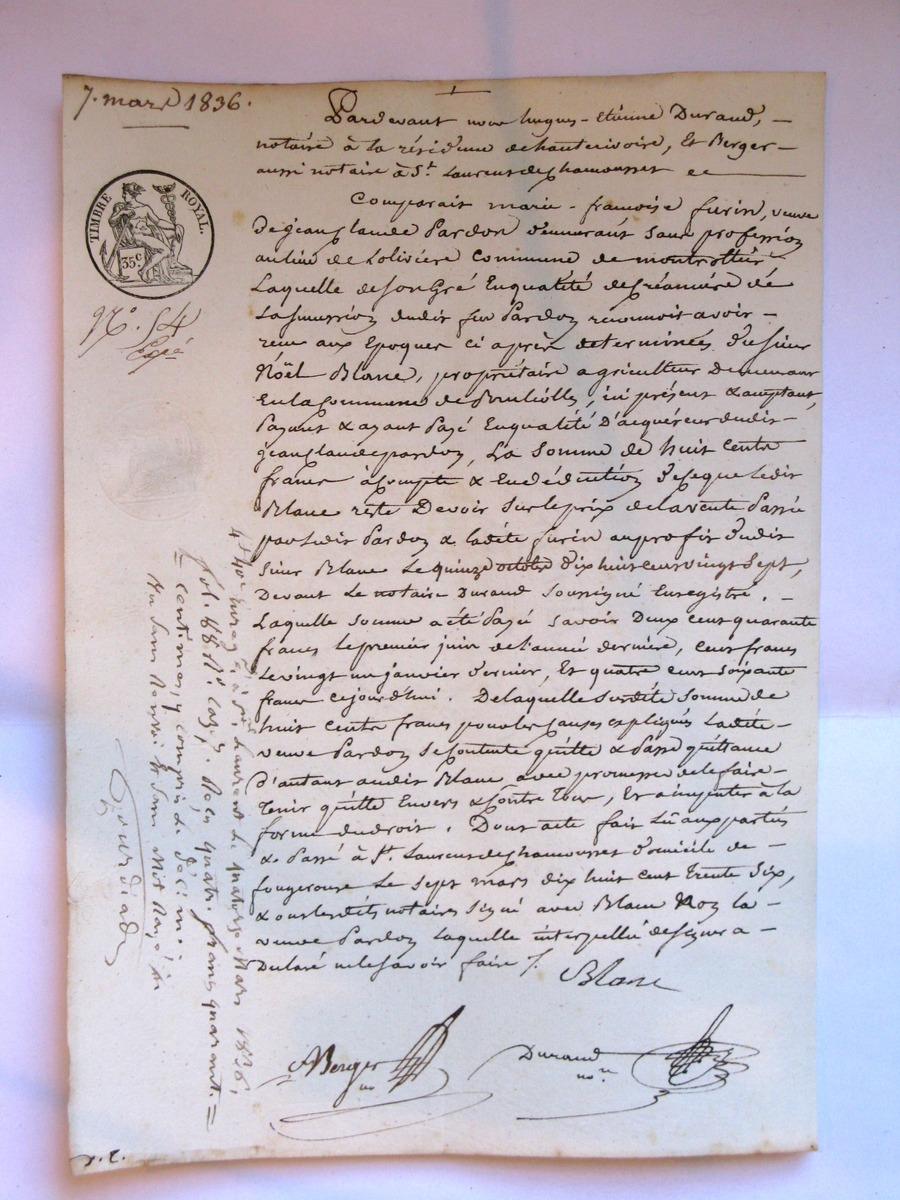 7. mars 1836.
Pardevant nous hugues-Etienne Durand,
notaire à la résidence dehauterivoire, Et Berger
aussi notaire à St. Laurent dechamousset
Comparait marie-françoise furin, veuve
Dejeanclaude Pardon demeurant sans profession
aulieu de Lolivière Commune de montrottier
Laquelle desongré Enqualité decréancière de
Lasuccession dudit feu Pardon reconnoit avoir
recu aux Epoques ci après determinées dusieur
Noël Blanc, propriétaire agriculteur Demeurant
Enlacommune de ici présent & acceptant,
Payant & ayant Payé Enqualité D'acquéreur dudit
jeanclaudepardon, La Somme de huit cents
francs àcompte & Endéduction decequeledit
Blanc reste Devoir Surleprix delavente Passée
parledit Pardon & ladite furin auprofit dudit
Sieur Blanc Lequinze octobre dixhuitcentvingt Sept,
Devant Le notaire Durand Soussigné Enregistré.
Laquelle somme aété Payé Savoir Deux centquarante
francs lepremier juin del'année dernière, cent francs
Levingt un janvier dernier, Et quatre cent soixante
francs cejourd'hui. Delaquelle Susdite Somme de
huit cents francs pourles causes expliqués Ladite
veuve Pardon Secontente quitte & Passe quittance
D'autant audit Blanc avec promesse delefaire
Tenir quitte Envers & Contre Tous, Et à la
forme dudroit. Dont acte fait Lû aux parties
& Passé à St. Laurent dechamousset domicile de
fougerouse Le Sept mars dix huit cent Trente Six,
& ont lesdits notaires Signé avec Blanc Non la
veuve Pardon Laquelle interpellée designer a
Déclaré nelesavoir faire
Blanc
Berger
nre
Durand
nore
TIMBRE ROYAL.
35c
No. 54
Expé
à St. Laurent le quatorze Mars 1836,
fol. 48 Ro. Reçu quatre francs quarante
centimes, y compris le décime
Gourdiat